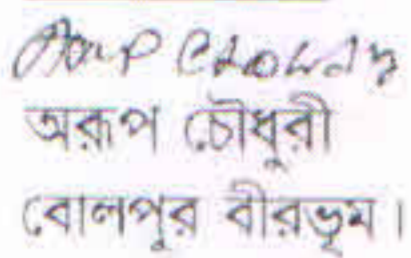 Arup Chowdhry
অরূপ চৌধুরী
বোলপুর বীরভূম।